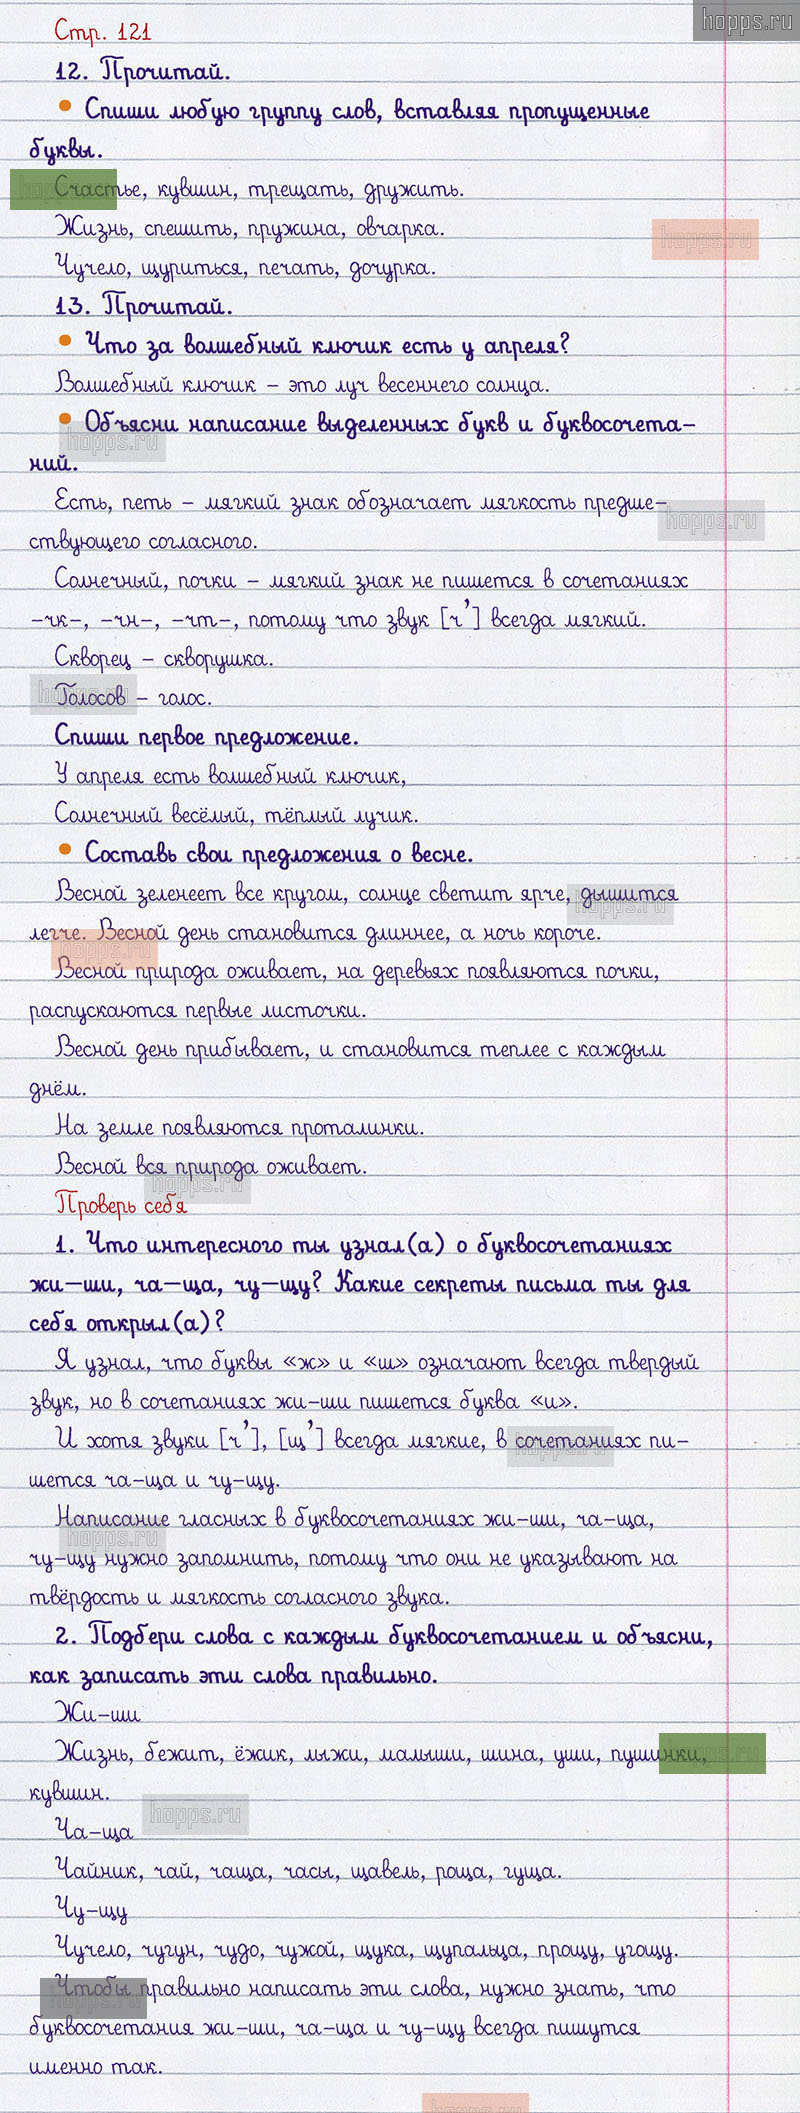 hopps.ru
Стр. 121
12. Прочитай.
• Спиши любую группу слов, вставляя пропущенные
буквы.
Счастье, кувшин, трещать, дружить.
Жизнь, спешить, пружина, овчарка.
hopps.ru
Чучело, щуриться, печать, дочурка.
13. Прочитай.
• Что за волшебный ключик есть у апреля?
Волшебный ключик – это луч весеннего солнца.
• Объясни написание выделенных букв и буквосочета–
hopps.ru
ний.
Есть, петь – мягкий знак обозначает мягкость предше–
hopps.ru
ствующего согласного.
Солнечный, почки – мягкий знак не пишется в сочетаниях
–чк–, –чн–, –чт–, потому что звук [ч’] всегда мягкий.
Скворец – скворушка.
Голосов – голос.
Спиши первое предложение.
У апреля есть волшебный ключик,
Солнечный весёлый, тёплый лучик.
• Составь свои предложения о весне.
Весной зеленеет все кругом, солнце светит ярче, дышится
hopps.ru
легче. Весной день становится длиннее, а ночь короче.
hopps.ru
Весной природа оживает, на деревьях появляются почки,
распускаются первые листочки.
Весной день прибывает, и становится теплее с каждым
днём.
На земле появляются проталинки.
Весной вся природа оживает.
hopps.ru
Проверь себя
1. Что интересного ты узнал(а) о буквосочетаниях
жи–ши, ча–ща, чу–щу? Какие секреты письма ты для
себя открыл(а)?
Я узнал, что буквы «ж» и «ш» означают всегда твердый
звук, но в сочетаниях жи–ши пишется буква «и».
И хотя звуки [ч’], [щ’] всегда мягкие, в сочетаниях пи–
hopps.ru
шется ча–ща и чу–щу.
Написание гласных в буквосочетаниях жи–ши, ча–ща,
hopps.ru
чу–щу нужно запомнить, потому что они не указывают на
твёрдость и мягкость согласного звука.
2. Подбери слова с каждым буквосочетанием и объясни,
как записать эти слова правильно.
Жи–ши
Жизнь, бежит, ёжик, лыжи, малыши, шина, уши, пушинки,
hopps.ru
кувшин.
hopps.ru
Ча–ща
Чайник, чай, чаща, часы, щавель, роща, гуща.
Чу–щу
Чучело, чугун, чудо, чужой, щука, щупальца, прощу, угощу.
Чтобы правильно написать эти слова, нужно знать, что
hopps.ru
буквосочетания жи–ши, ча–ща и чу–щу всегда пишутся
именно так.
hopps.ru